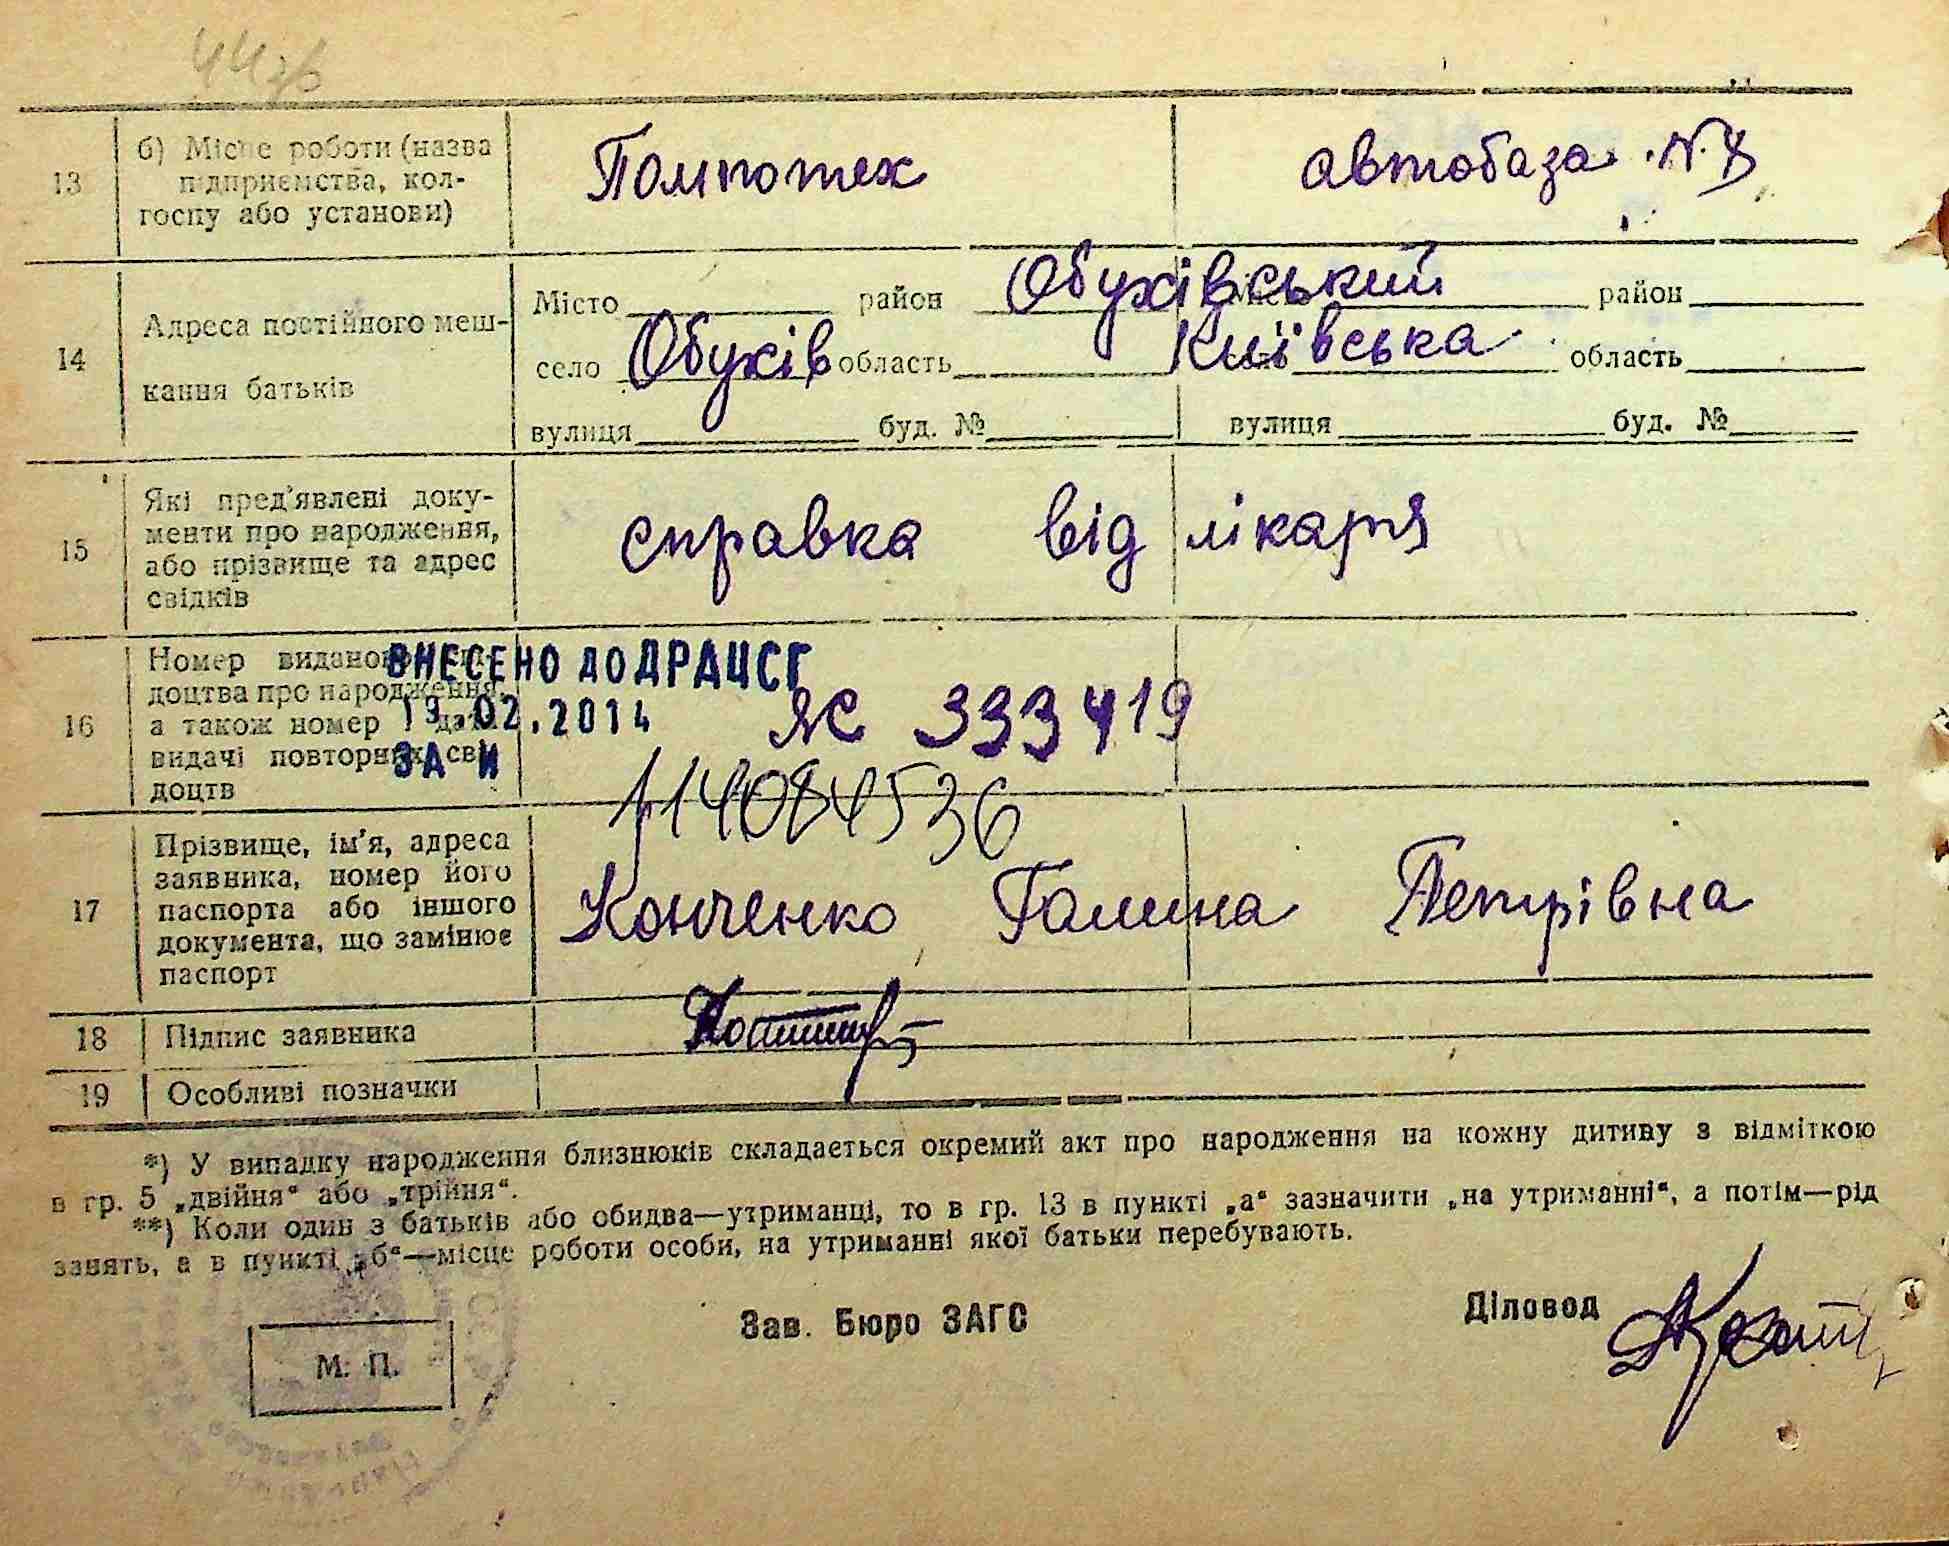 13
б) Місце роботи (назва
підприємства, кол-
госпу або установи)
автобаза N. 8
14
Адреса постійного меш-
кання батьків
Місто район Обухівський район
село Обухів область Київська область
вулиця буд. № вулиця буд. №
15
Які пред'явлені доку-
менти про народження,
або прізвище та адрес
свідків
справка від лікаря
16
Номер виданого сві-
доцтва про народження,
а також номер і дата
видачі повторних сві-
доцтв
ВНЕСЕНО ДО ДРАЦСГ
19.02.2014
ЗА И
ЯС 333419
114084536
17
Прізвище, ім'я, адреса
заявника, номер його
паспорта або іншого
документа, що замінює
паспорт
Конченко Галина Петрівна
18
Підпис заявника
19
Особливі позначки
*) У випадку народження близнюків складається окремий акт про народження на кожну дитину з відміткою
в гр. 5 „двійня“ або „трійня“.
**) Коли один з батьків або обидва—утриманці, то в гр. 13 в пункті „а“ зазначити „на утриманні“, а потім—рід
занять, а в пункті „б“—місце роботи особи, на утриманні якої батьки перебувають.
М. П.
Зав. Бюро ЗАГС
Діловод